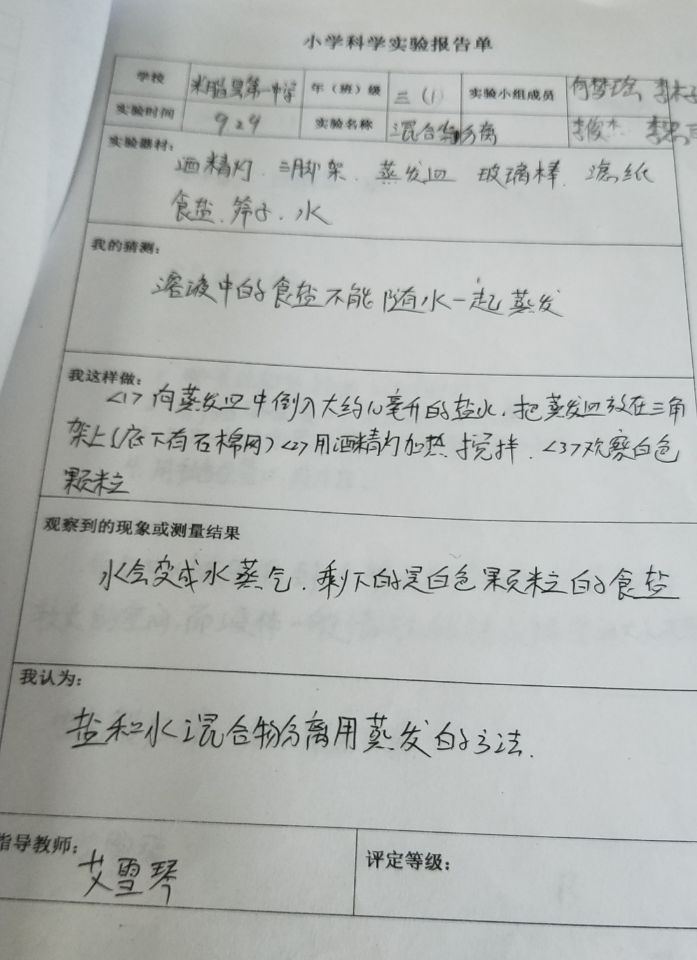 小学科学实验报告单
学校 米脂县第一中学 年（班）级 三（1） 实验小组成员 何梦瑶
实验时间 9 29 实验名称 混合物分离 李俊杰
实验器材：
酒精灯．三脚架．蒸发皿 玻璃棒．滤纸
食盐．筛子．水
我的猜测：
溶液中的食盐不能随水一起蒸发
我这样做：
<1>向蒸发皿中倒入大约10毫升的盐水．把蒸发皿放在三角
架上(底下有石棉网)<2>用酒精灯加热．搅拌．<3>观察白色
颗粒
观察到的现象或测量结果
水会变成水蒸气．剩下的是白色颗粒的食盐
我认为：
盐和水混合物分离用蒸发的方法．
指导教师：
艾雪琴
评定等级：